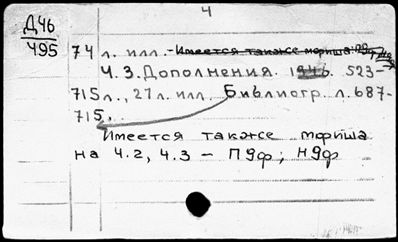 4
Д46
495
74 л. илл. - Имеется также мфиша:
Ч. 3. Дополнения. 1946. 523-
715 л., 27 л. илл. Библиогр. л. 687-
715.
Имеется также мфиша
на ч.2, ч.3 - П9ф; Н9ф